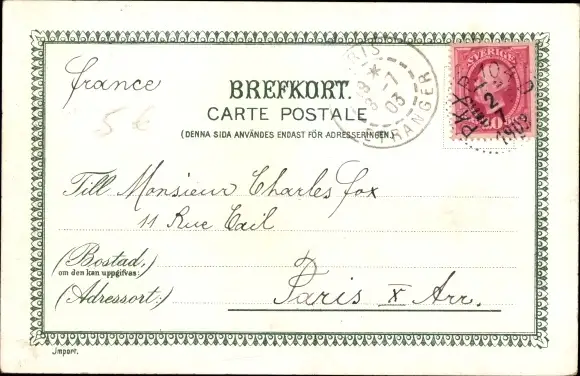 France
BREFKORT.
CARTE POSTALE
(DENNA SIDA ANVÄNDES ENDAST FÖR ADRESSERINGEN.)
5 €
SVERIGE
ETRANGER
8 - 7
03
1903
Till Monsieur Charles Fox
11 Rue Cail
(Bostad,
om den kan uppgifvas:)
(Adressort:)
Paris X Arr.
Import.